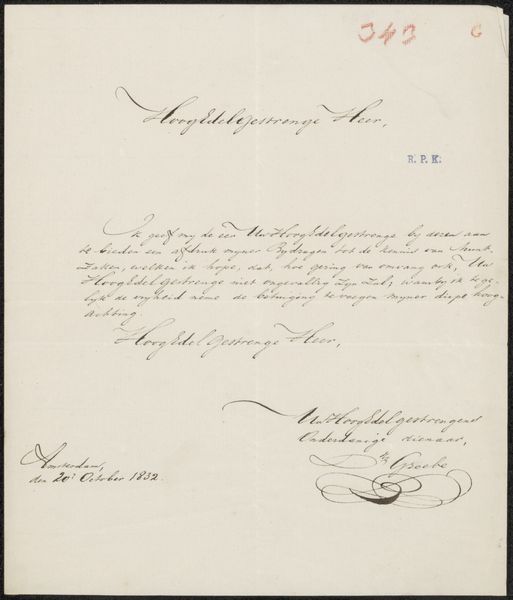 343 G
HoogEdelGestrenge Heer,
R. P. K.
Ik geef my de eer UwHoogEdelGestrenge by dezen aan
te bieden een afdruk myner Bydragen tot de kennis van Munt-
Zaken, welken ik hope, dat, hoe gering van omvang ook, Uw
HoogEdelGestrenge niet ongevallig zyn zal, waarby ik te ge-
lyk de vryheid neme de betuiging te voegen myner diepe hoog-
achting.
HoogEdelGestrenge Heer,
UwHoogEdelgestrengens
Onderdanige dienaar,
Groebe
Amsterdam,
den 20e October 1832.